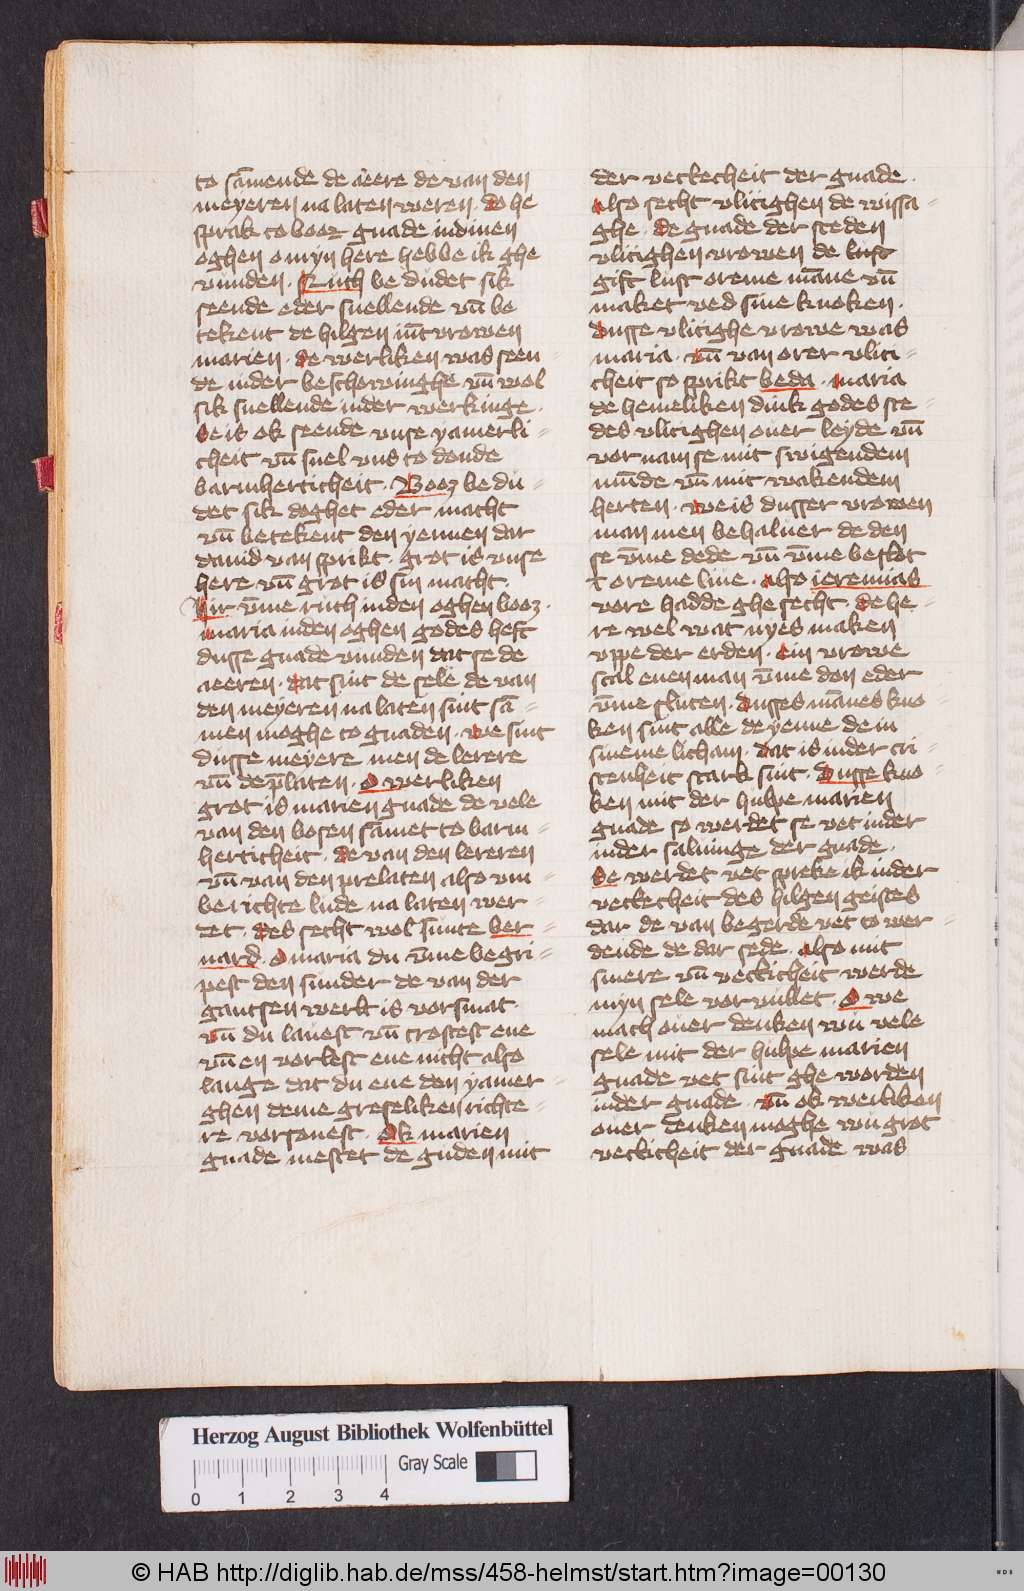 to sāmende de aeere de van den
meyeren na laten weren. do he
sprak to booz gnade in dinen
oghen o myn here hebbe ik ghe
vunden. Ruth be dudet sik
seende eder snellende vn̄ be
tekent de hilgen iūcvrowen
marien. de werliken was seen
de in der beschowinghe vn̄ wol
sik snellende in der werkinge.
Se is ok seende vnse yamerli-
cheit vn̄ snel vns to donde
barmherticheit. Booz be du-
det sik doghet eder macht
vn̄ betekent den yennen dar
dauid van sprikt. grot is vnse
here vn̄ grot is sin macht.
Hir v̄me ruth in den oghen booz.
maria in den oghen godes heft
dusse gnade vunden dat se de
aeeren. dat sint de sele de van
den meyeren na laten sint sā-
men moghe to gnaden. we sint
dusse meyere men de lerere
vn̄ de p̄laten. O werliken
grot is marien gnade de vele
van den bosen sāmet to barm-
herticheit. de van den lereren
vn̄ van den prelaten also vm
be richte lude na laten wer-
det. des secht wol sunte ber-
nard. O maria du v̄me begri-
pest den sunder de van der
gantsen werlt is vorsmat.
vn̄ du lauest vn̄ trostest ene
vn̄ en vorlest ene nicht also
lange dat du ene den yamer-
ghen deme greseliken richte-
re vorsonest. Ok marien
gnade mestet de guden mit
der vetkecheit der gnade.
Also secht vlitighen de wissa-
ghe. de gnade der steden
vlitighen vrowen de lust
gift lust oreme māne vn̄
maket ved sine knoken.
Dusse vlitighe vrowe was
maria. vn̄ van orer vliti-
cheit so sprikt beda. maria
de hemeliken dink godes ste-
des vlitighen ouer leyde vn̄
vor nam se mit swigendem
mūde vn̄ mit wakendem
herten. we is dusser vrowen
man men behaluer de den
se v̄me dede vn̄ v̄me beslot
t oreme liue. also ieremias
vore hadde ghe secht. De he-
re wel wat nyes maken
vppe der erden. ein vrowe
scal enen man v̄me don eder
v̄me sluten. dusses mānes kno-
ken sint alle de yenne de in
sineme licham. dat is in der cri-
stenheit stark sint. Dusse kno-
ken mit der hulpe marien
gnade so werdet se vet in der
in der saluinge der gnade.
Se werdet vet spreke ik in der
vetkecheit des hilgen geistes
dar de van begerde vet to wer-
dende de dar sede. also mit
smere vn̄ vetkicheit werde
myn sele vor vullet. O we
mach ouer denken wu vele
sele mit der hulpe marien
gnade vet sint ghe worden
in der gnade. vn̄ ok werliken
ouer denken moghe wu grot
vetkicheit der gnade was
Herzog August Bibliothek Wolfenbüttel
Gray Scale
0 1 2 3 4
© HAB http://diglib.hab.de/mss/458-helmst/start.htm?image=00130